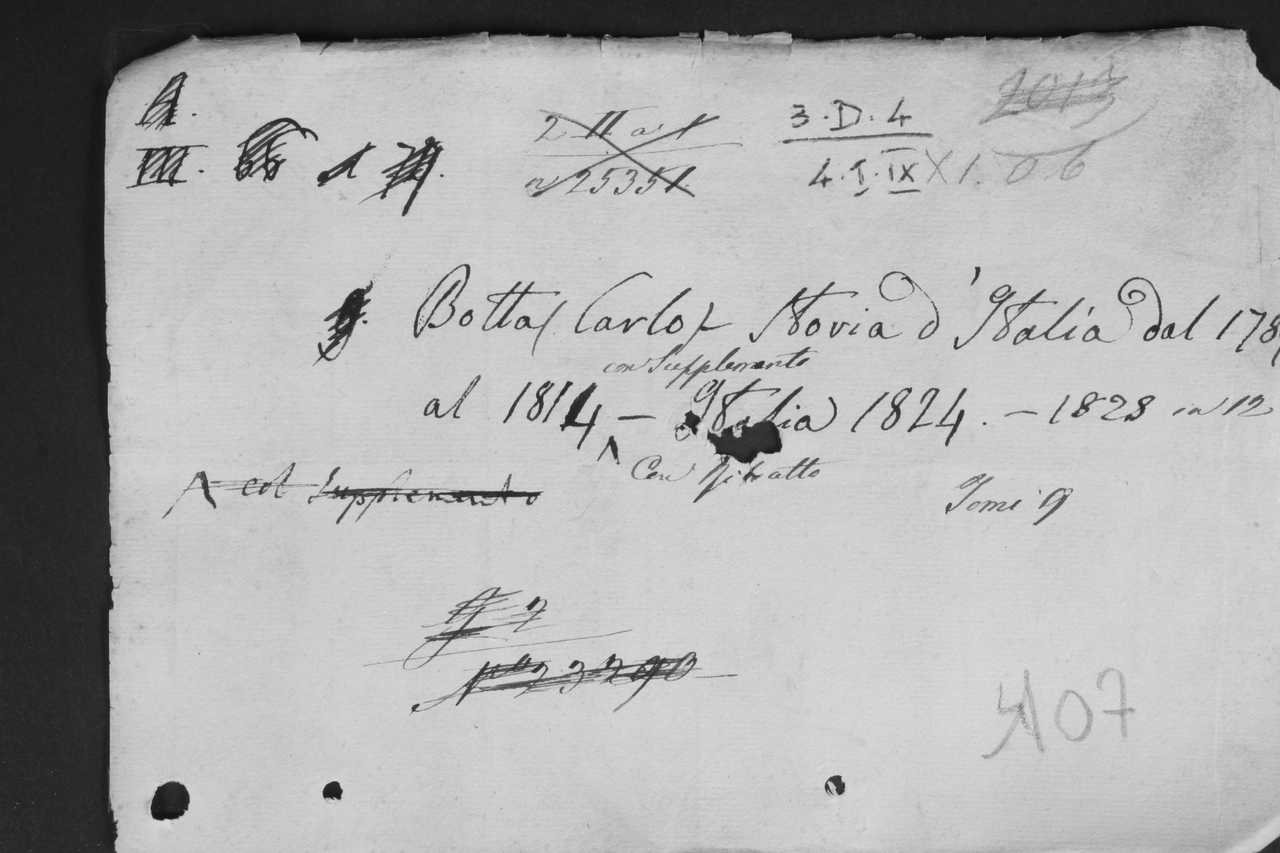 2 II a 1
n 25351.
3.D.4
4.I.IX X1.06
2013
Botta (Carlo) Storia d'Italia dal 1789
con Supplemento
al 1814 – Italia 1824. – 1828 in 12
Con Ritratto
col Supplemento
Tomi 9
2
N° 23290
07